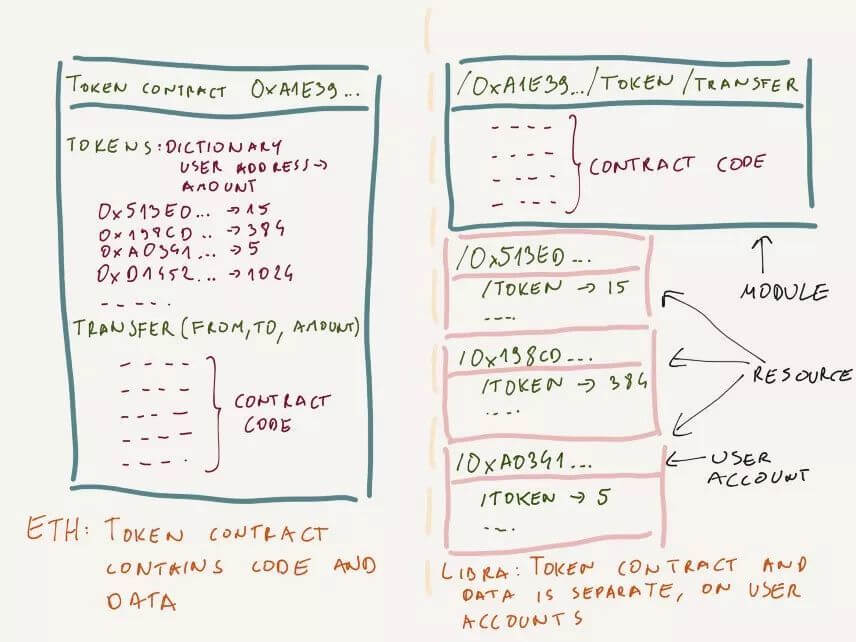 TOKEN CONTRACT 0xA1E39...
TOKENS: DICTIONARY
USER ADDRESS →
AMOUNT
0x513ED... → 15
0x198CD.. → 384
0xA0341... → 5
0xD1452... → 1024
-----
TRANSFER (FROM, TO, AMOUNT)
CONTRACT
CODE
ETH: TOKEN CONTRACT
CONTAINS CODE AND
DATA
/0xA1E39.../TOKEN/TRANSFER
CONTRACT CODE
MODULE
/0x513ED...
/TOKEN → 15
----
/0x198CD...
/TOKEN → 384
----
RESOURCE
/0xA0341...
/TOKEN → 5
---
USER
ACCOUNT
LIBRA: TOKEN CONTRACT AND
DATA IS SEPARATE, ON USER
ACCOUNTS